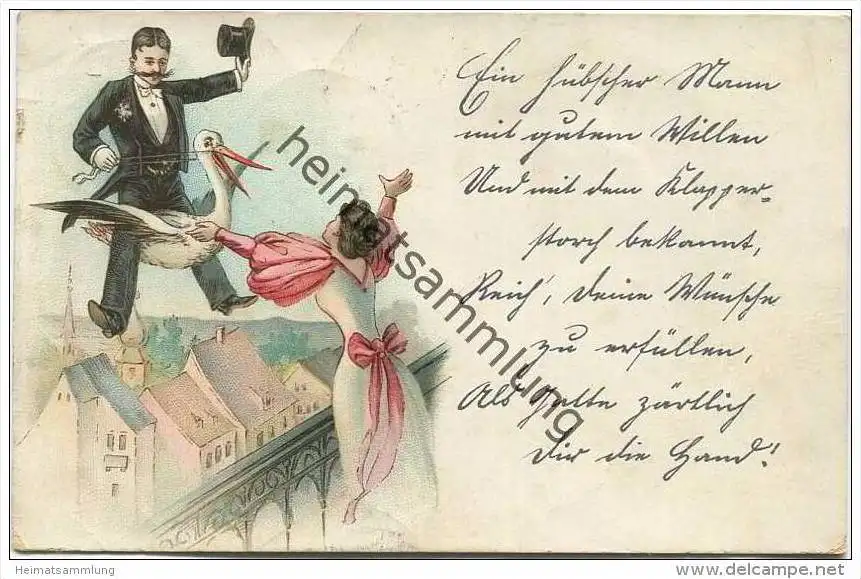 Ein hübscher Mann
mit gutem Willen
Und mit dem Klapper-
storch bekannt,
Reich', Deine Wünsche
zu erfüllen,
Als Gatte zärtlich
Dir die Hand!
heimatsammlung
Heimatsammlung
delcampe.net